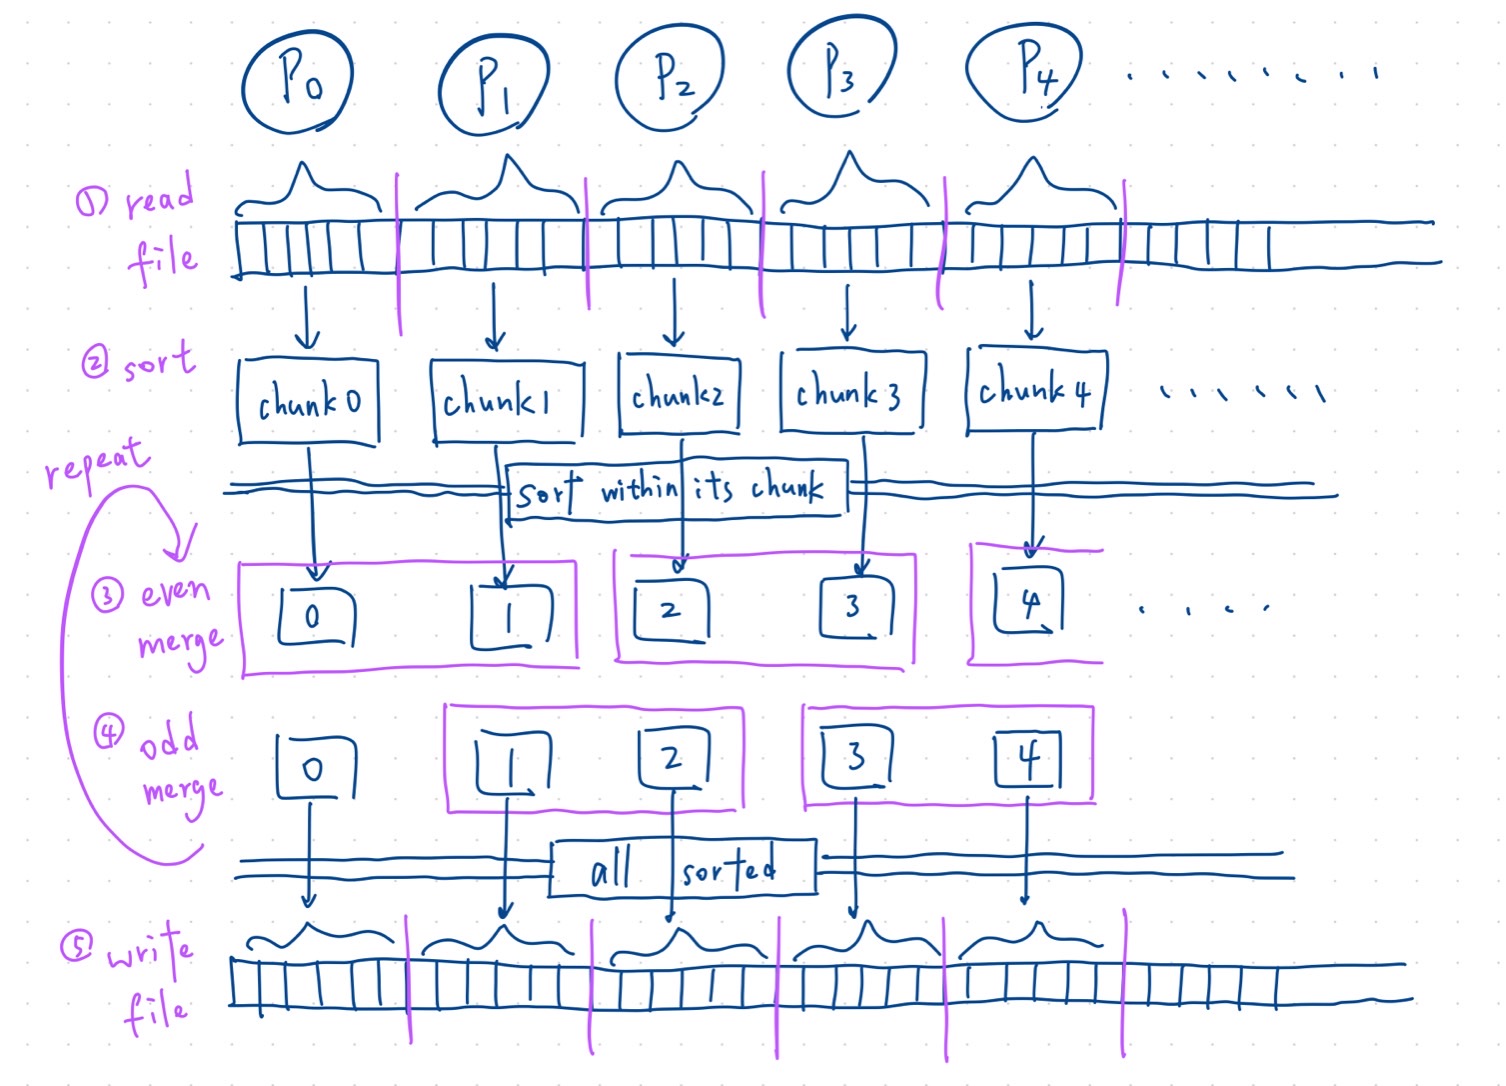 P0 P1 P2 P3 P4 ........
① read
file
② sort
chunk 0 chunk 1 chunk2 chunk 3 chunk 4 ......
repeat
sort within its chunk
③ even
merge
0 1 2 3 4 ....
④ odd
merge
0 1 2 3 4
all sorted
⑤ write
file